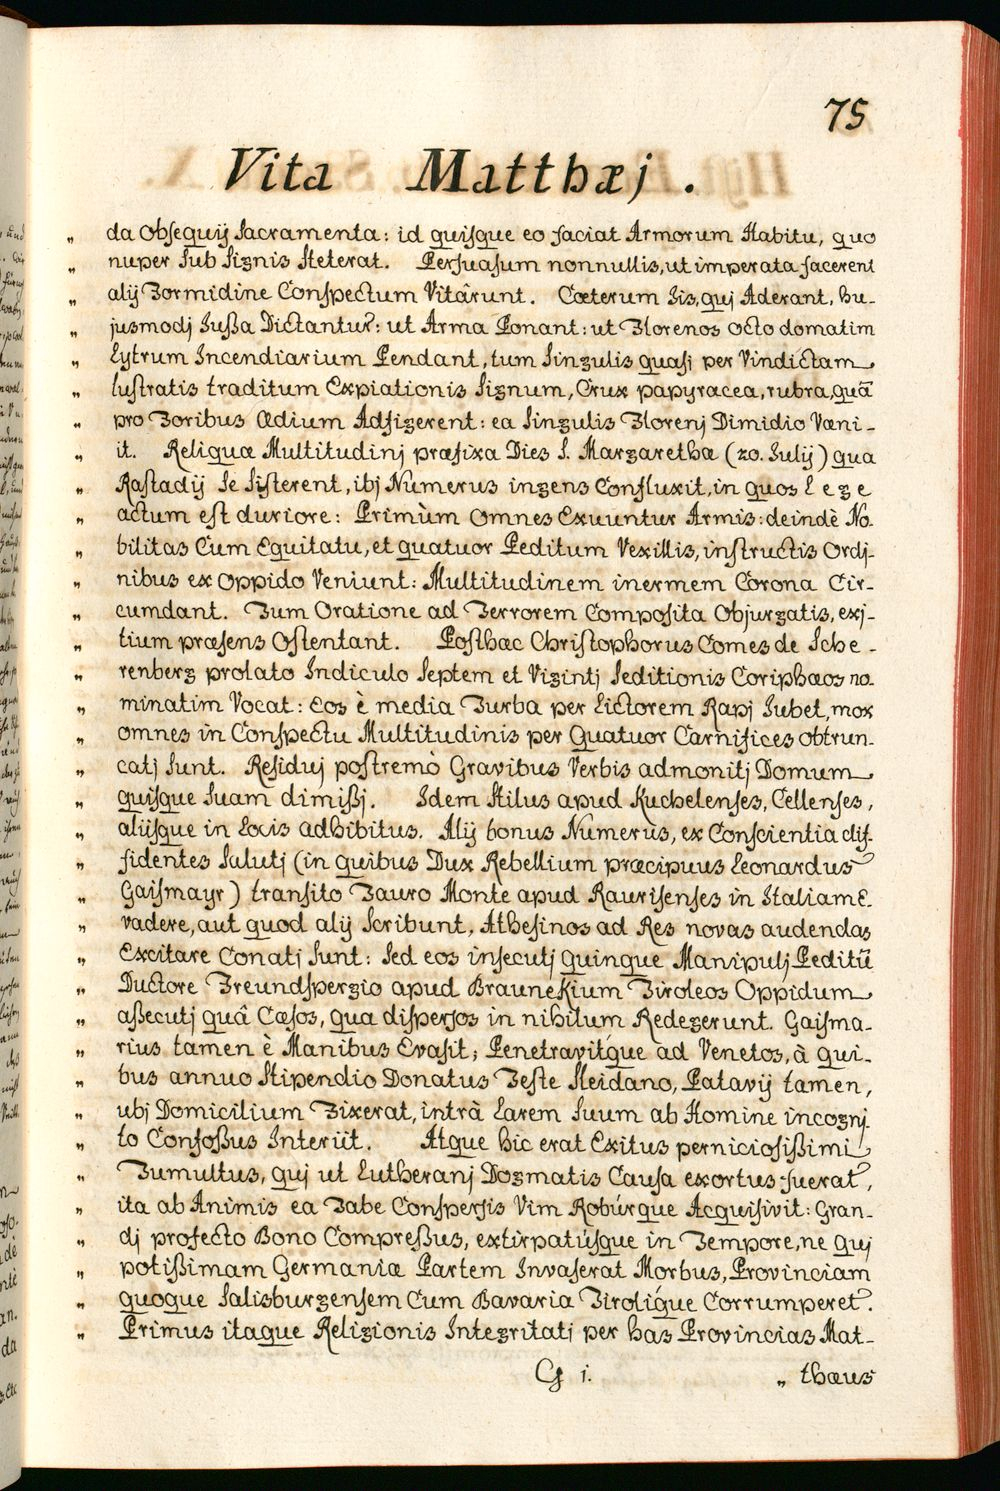 75
Vita Matthæj.
„ da Obsequij Sacramenta: id quisque eo faciat Armorum Habitu, quo
„ nuper Sub Signis Steterat. Persuasum nonnullis, ut imperata facerent
„ alij Formidine Conspectum Vitârunt. Cæterum Iis, quj Aderant, hu-
„ jusmodj Iussa Dictantur: ut Arma Ponant: ut Florenos octo domatim
„ Lytrum Incendiarium Pendant, tum Singulis quasi per Vindictam
„ lustratis traditum Expiationis Signum, Crux papyracea, rubra, quā
„ pro Foribus Ædium Adfigerent: ea Singulis Florenj Dimidio Væni-
„ it. Reliquæ Multitudinj præfixa Dies S. Margarethæ (20. Iulij) qua
„ Rastadij Se Sisterent, ibj Numerus ingens Confluxit, in quos lege
„ actum est duriore: Primùm omnes Exuuntur Armis: deindè No-
„ bilitas Cum Equitatu, et quatuor Peditum Vexillis, instructis Ordj-
„ nibus ex Oppido Veniunt: Multitudinem inermem Corona Cir-
„ cumdant. Tum Oratione ad Terrorem Composita Objurgatis, exj-
„ tium præsens Ostentant. Posthac Christophorus Comes de Sche-
„ renberg prolato Indiculo Septem et Vigintj Seditionis Coriphæos no-
„ minatim Vocat: Eos è media Turba per Lictorem Rapj Iubet, mox
„ omnes in Conspectu Multitudinis per Quatuor Carnifices obtrun-
„ catj Sunt. Residuj postremò Gravibus Verbis admonitj Domum
„ quisque Suam dimissj. Idem Stilus apud Kuchelenses, Cellenses,
„ aliisque in Locis adhibitus. Alij bonus Numerus, ex Conscientia dif-
„ fidentes Salutj (in quibus Dux Rebellium præcipuus Leonardus
„ Gaismayr) transito Tauro Monte apud Raurisenses in Italiam E-
„ vadere, aut quod alij Scribunt, Athesinos ad Res novas audendas
„ Excitare Conatj Sunt: Sed eos insecutj quinque Manipulj Peditū
„ Ductore Freundspergio apud Braunekium Tiroleos Oppidum
„ assecutj quâ Cæsos, qua dispersos in nihilum Redegerunt. Gaisma-
„ rius tamen è Manibus Evasit; Penetravitque ad Venetos, à qui-
„ bus annuo Stipendio Donatus Teste Sleidano, Patavij tamen,
„ ubj Domicilium Fixerat, intrà Larem Suum ab Homine incognj-
„ to Confossus Interiit. Atque hic erat Exitus perniciosissimi
„ Tumultus, quj ut Lutheranj Dogmatis Causa exortus fuerat,
„ ita ab Animis ea Tabe Conspersis Vim Robúrque Acquisivit: Gran-
„ dj profecto Bono Compressus, extirpatúsque in Tempore, ne quj
„ potissimam Germaniæ Partem Invaserat Morbus, Provinciam
„ quoque Salisburgensem Cum Bavaria Tirolíque Corrumperet.
„ Primus itaque Religionis Integritati per has Provincias Mat-
G i. „ thæus